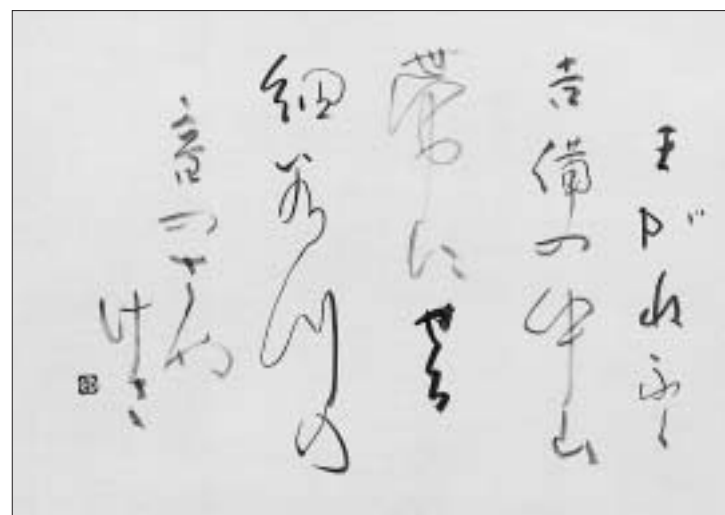 まがねふく
吉備の中山
帯にせる
細谷川の
音のさや
けさ